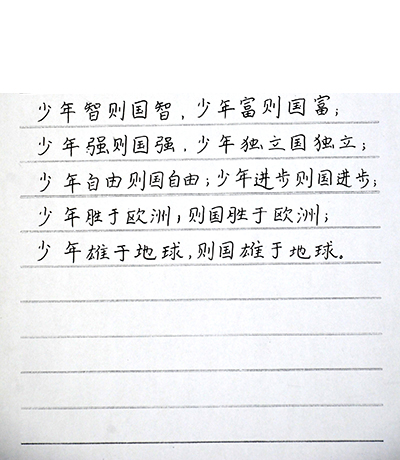 少年智则国智，少年富则国富；
少年强则国强，少年独立国独立；
少年自由则国自由；少年进步则国进步；
少年胜于欧洲；则国胜于欧洲；
少年雄于地球，则国雄于地球。